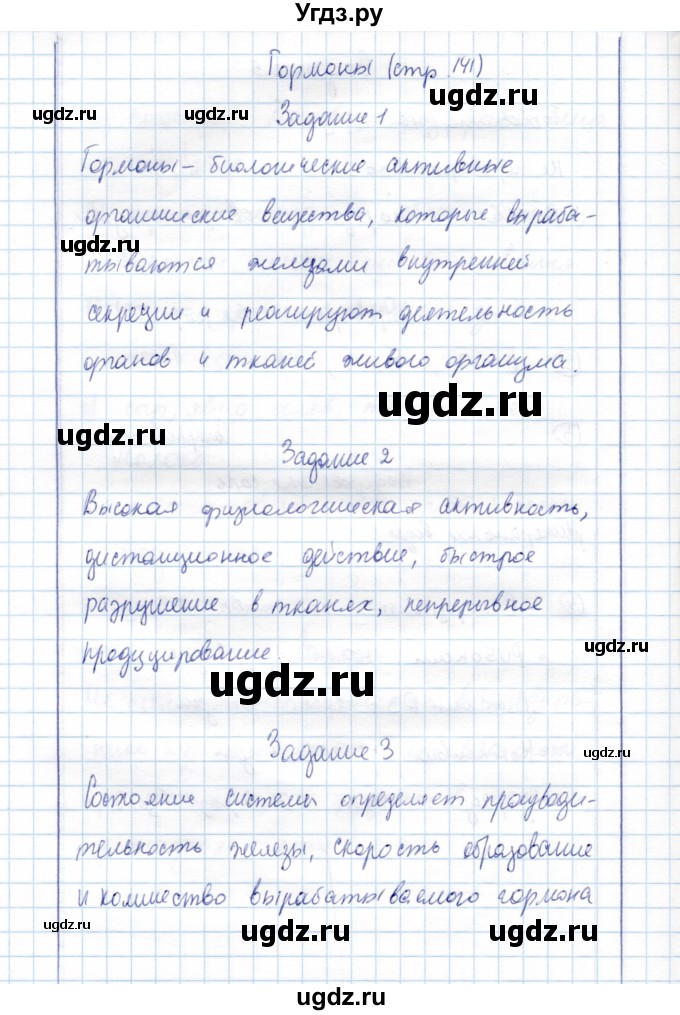 Угдз.ру
Гормоны (стр. 141)
ugdz.ru
ugdz.ru
Задание 1
Гормоны – биологические активные
органические вещества, которые выраба-
ugdz.ru
тываются железами внутренней
секреции и реагируют деятельность
органов и тканей живого организма.
ugdz.ru
ugdz.ru
Задание 2
Высокая физиологическая активность,
дистанционное действие, быстрое
разрушение в тканях, непрерывное
ugdz.ru
продуцирование.
ugdz.ru
Задание 3
ugdz.ru
Состояние системы определяет производи-
тельность железы, скорость образование
и количество вырабатываемого гормона
ugdz.ru
ugdz.ru
ugdz.ru
ugdz.ru